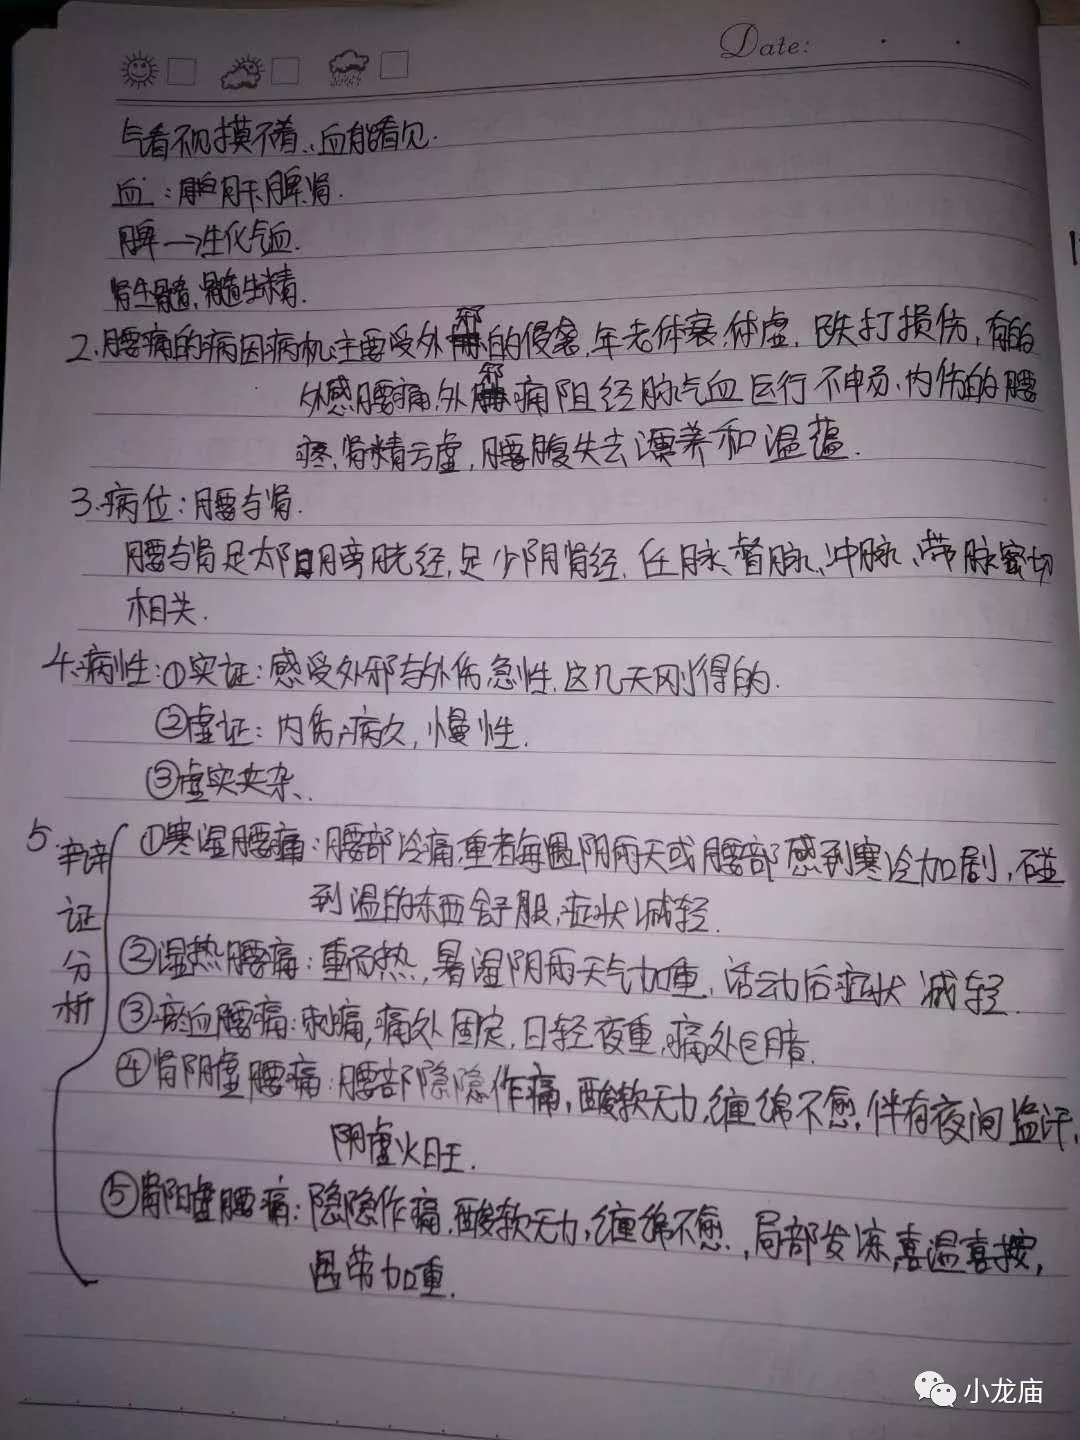 Date:
气看不见摸不着、血能看见.
血:肝脾肾.
脾→生化气血.
肾生骨髓,髓生精.
2.腰痛的病因病机:主要受外邪的侵袭,年老体衰,体虚,跌打损伤,有的
外感腰痛,外邪痛阻经脉气血运行不申易,内伤的腰
疼,肾精亏虚,腰腹失去濡养和温蕴.
3.病位:腰与肾.
腰与肾足太阳膀胱经,足少阴肾经,任脉、督脉、冲脉、带脉密切
相关.
4.病性:①实证:感受外邪与外伤,急性,这几天刚得的.
②虚证:内伤,病久,慢性.
③虚实夹杂、
5.辨证分析
①寒湿腰痛:腰部冷痛,重者每遇阴雨天或腰部感到寒冷加剧,碰
到温的东西舒服,症状减轻.
②湿热腰痛:重而热,暑湿阴雨天气加重,活动后症状减轻.
③瘀血腰痛:刺痛,痛处固定,日轻夜重,痛处色暗.
④肾阴虚腰痛:腰部隐隐作痛,酸软无力,缠绵不愈,伴有夜间盗汗,
阴虚火旺.
⑤肾阳虚腰痛:隐隐作痛,酸软无力,缠绵不愈,局部发凉,喜温喜按,
遇劳加重.
小龙庙